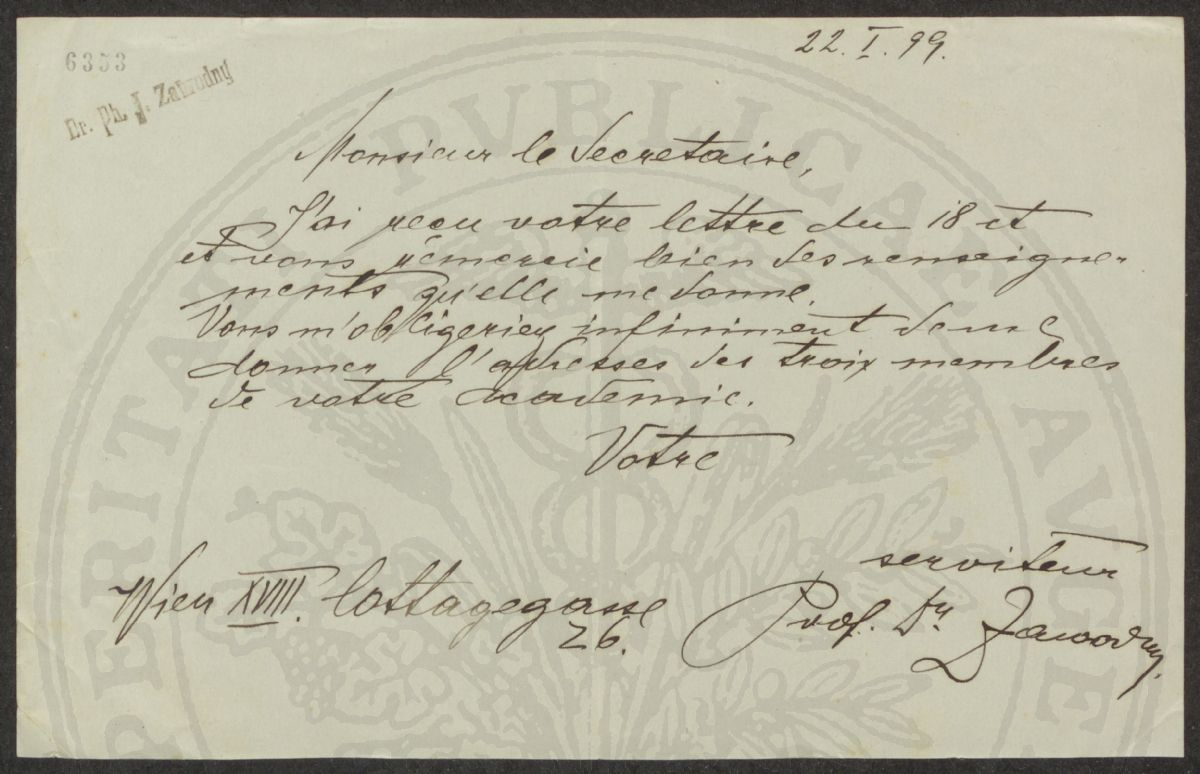 6353
Dr. Ph. J. Zawodny
22. I. 99.
Monsieur le Secretaire,
J'ai reçu votre lettre du 18 et
et vous rémercie bien des renseigne-
ments qu'elle me donne.
Vous m'obligeriez infiniment de me
donner l'adresses des troix membres
de votre Academie.
Votre
serviteur
Wien XVIII. Cottagegasse
26.
Prof. Dr. Zawodny.
PROSPERITATI PVBLICAE AVGE